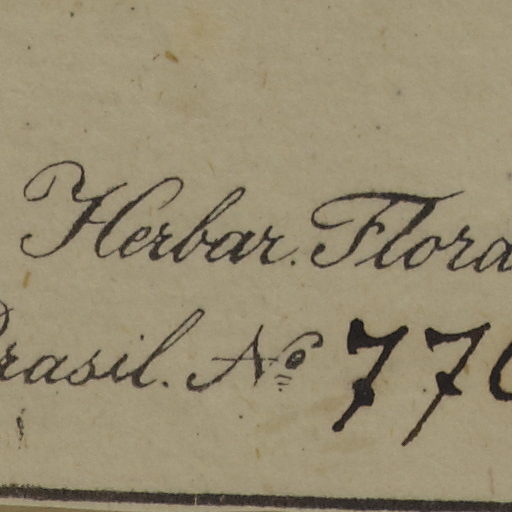 Herbar. Flora
Brasil. Nº 77